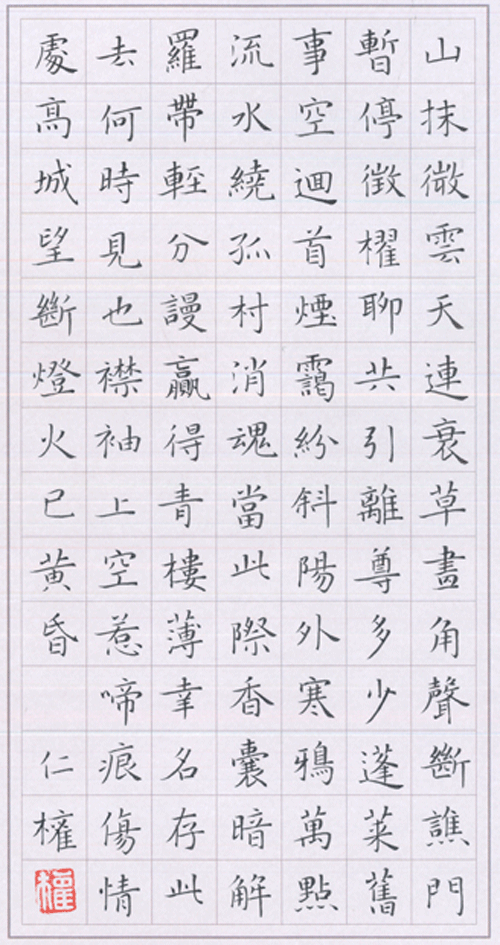 山抹微雲天連衰草畫角聲斷譙門
暫停徵櫂聊共引離尊多少蓬萊舊
事空迴首煙靄紛斜陽外寒鴉萬點
流水繞孤村消魂當此際香囊暗解
羅帶輕分謾贏得青樓薄幸名存此
去何時見也襟袖上空惹啼痕傷情
處高城望斷燈火已黃昏
仁權
權